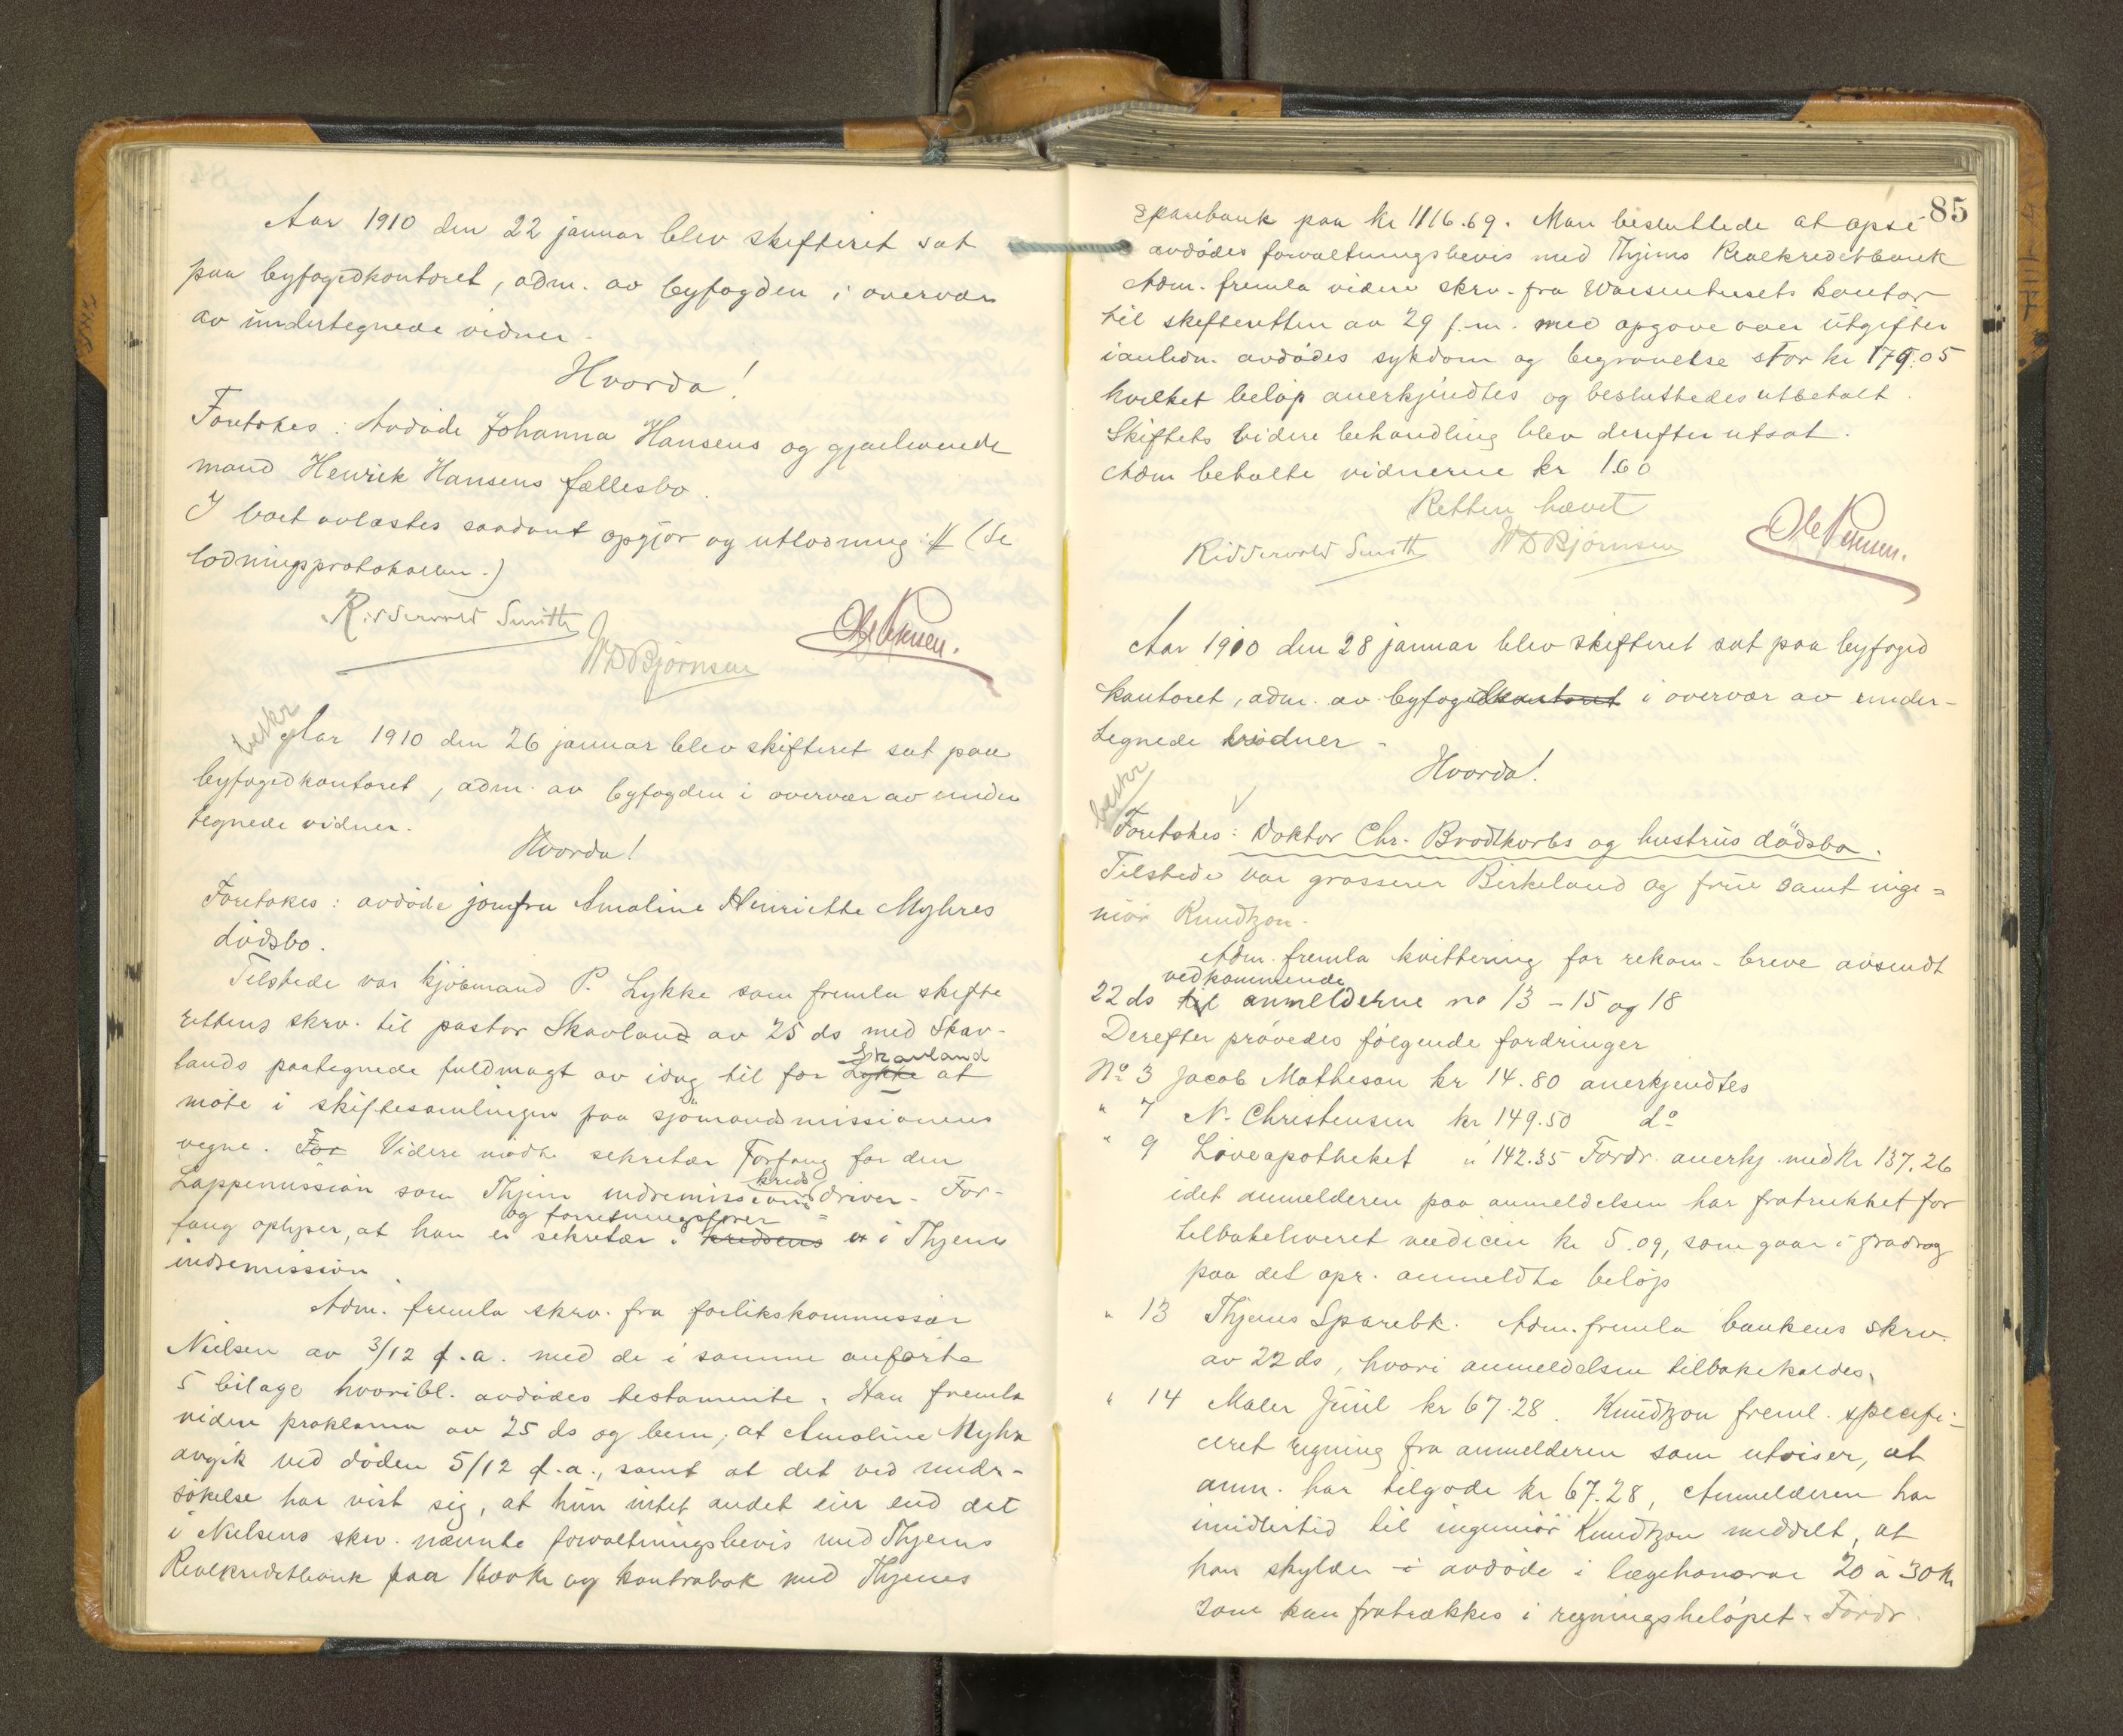 Aar 1910 den 22 januar blev skifteret sat
paa byfogedkontoret, adm. av byfogden i overvær
av undertegnede vidner.
Hvorda!
Foretokes: Avdøde Johanna Hansens og gjenlevende
mand Henrik Hansens fællesbo.
I boet avlæstes saadant opgjør og utlodning: # (Se
lodningsprotokollen.)
Ridderwold Smith
W D Bjørnsen
beskr
Aar 1910 den 26 januar blev skifteret sat paa
byfogedkontoret, adm. av byfogden i overvær av under
tegnede vidner.
Hvorda!
Foretokes: avdøde jomfru Amaline Henriette Myhres
dødsbo.
Tilstede var kjøbmand P. Lykke som fremla skifte
rettens skrv. til pastor Skavland av 25 ds med Skav-
lands paategnede fuldmagt av idag til for Lykke Skavland at
møte i skiftesamlingen paa sjømandsmissionens
vegne. For Videre mødte sekretær Forfang for den
Lappemission som Thjems indremissions kreds driver. For-
fang oplyser, at han er sekretær og forretningsfører i kredsens i Thjems
indremission.
Adm. fremla skrv. fra forlikskommissær
Nielsen av 3/12 f.a. med de i samme anførte
5 bilage hvoribl. avdødes testamente. Han fremla
videre proklama av 25 ds og bem, at Amaline Myhre
avgik ved døden 5/12 f.a., samt at det ved under-
søkelse har vist sig, at hun intet andet eier end det
i Nielsens skrv. nævnte forvaltningsbevis med Thjems
Realkreditbank paa 1600 kr og kontrabok med Thjems
85
Sparebank paa kr 1116.69. Man besluttede at opsi
avdødes forvaltningsbevis med Thjems Realkreditbank
Adm. fremla videre skrv. fra Waisenhusets kontor
til skifteretten av 29 f.m. med opgave over utgifter
i anledn. avdødes sykdom og begravelse stor kr 179.05
hvilket beløp anerkjendtes og besluttedes utbetalt.
Skiftets videre behandling blev derefter utsat.
Adm betalte vidnerne kr 1.60
Retten hævet
Ridderwold Smith W D Bjørnsen
Aar 1910 den 28 januar blev skifteret sat paa byfoged
kontoret, adm. av byfogedkontoret i overvær av under-
tegnede vidner.
Hvorda!
beskr
Foretokes: Doktor Chr. Brodtkorbs og hustrus dødsbo.
Tilstede var grosserer Birkeland og frue samt inge=
niør Knudtzon.
Adm. fremla kvittering for rekom. breve avsendt
22 ds til vedkommende anmelderne no 13 - 15 og 18
Derefter prøvedes følgende fordringer
No 3 Jacob Matheson kr 14.80 anerkjendtes
" 7 N. Christensen kr 149.50 do
" 9 Løveapotheket " 142.35 Fordr. anerkj. med kr 137.26
idet anmelderen paa anmeldelsen har fratrukket for
tilbakeleveret medicin kr 5.09, som gaar i fradrag
paa det opr. anmeldte beløp
" 13 Thjems Sparebk. Adm. fremla bankens skrv.
av 22 ds, hvori anmeldelsen tilbakekaldes.
" 14 Maler Juul kr 67.28. Knudtzon freml. specifi-
ceret regning fra anmelderen som utviser, at
anm. har tilgode kr 67.28, Anmelderen har
imidlertid til ingeniør Knudtzon meddelt, at
han skylder i avdøde i lægehonorar 20 à 30 kr
som kan fratrækkes i regningsbeløpet. Fordr.